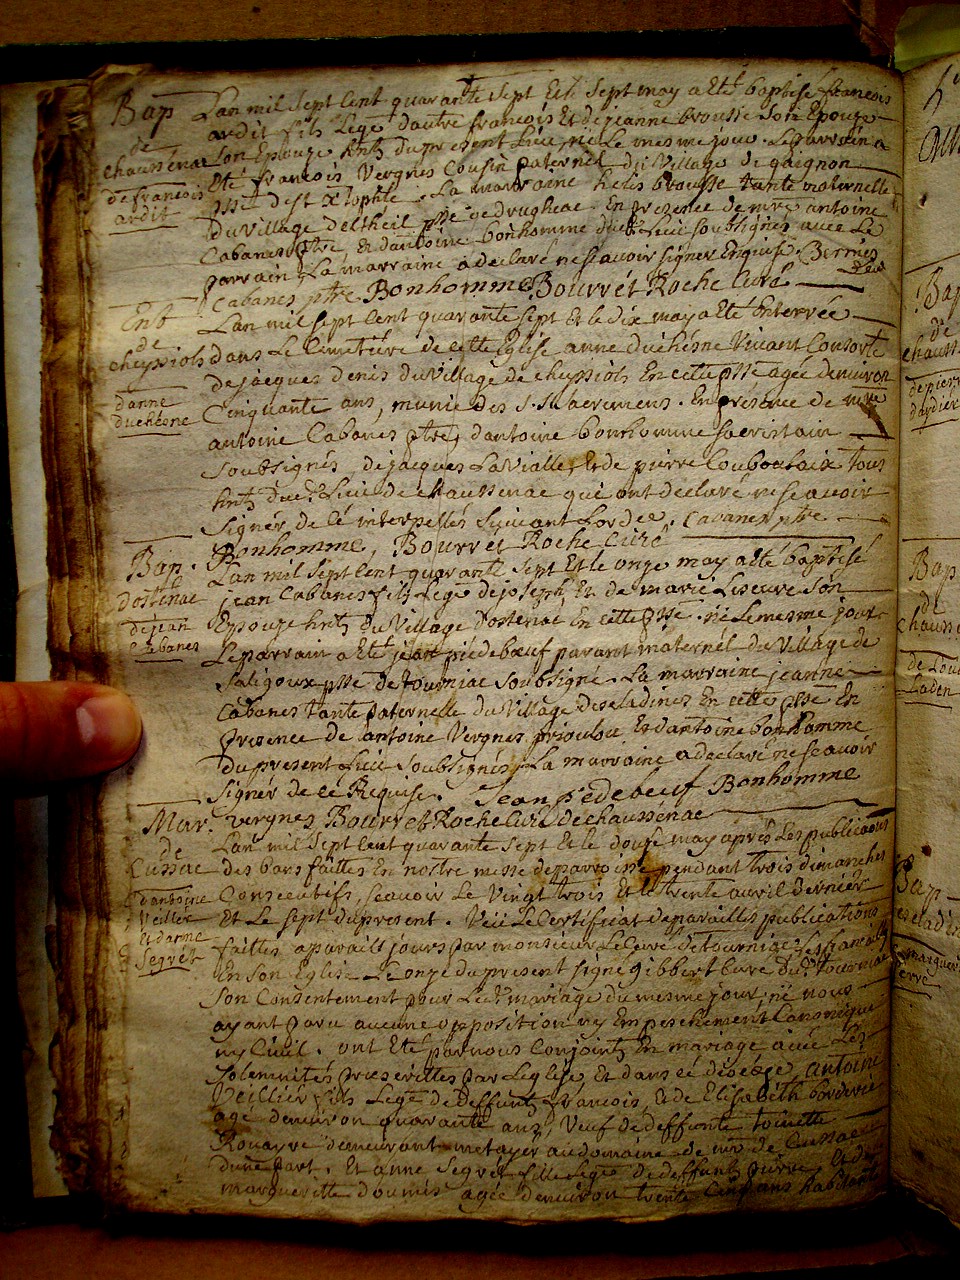 Bap
de
chaussénac
de francois
ardit
Lan mil sept cent quarante sept Et le sept may a eté baptisé francois
ardit fils Lege dautre francois Et de jeanne brousse son Epouze
son Epouze du present Lieu, né Le mesme jour. Le parrain a
Eté francois Vergnes Cousin paternel du Village de
psse dest La marraine helis brousse tante maternelle
du Village deltheil psse de drugheac. En presence de mre antoine
Cabanes ptre, Et dantoine bonhomme dud. Lieu soubsignés avec Le
parrain, La marraine a declaré ne scavoir signer Enquise.
Cabanes ptre Bonhomme Bourret Roche Curé
Ent
de
cheyssiols
danne
duchesne
Lan mil sept cent quarante sept Et le dix may a eté Enterrée
dans Le Cimetière de cette Eglise anne duchesne Vivant Consorte
de jacques denis du Village de cheyssiols En cette psse agée denviron
Cinquante ans, munie des s. sacremens. En presence de mre
antoine Cabanes ptre, dantoine bonhomme sacristain
Soubsignés, de jacques La Vialle, Et de pierre Couboulaix tous
dud. Lieu de chaussenac qui ont declaré ne scavoir
Signér, de cé interpellés suivant Lordce. Cabanes ptre
Bonhomme, Bourret Roche Curé
Bap.
dostenac
de jean
Cabanes
Lan mil sept cent quarante sept Et le onze may a eté baptisé
jean Cabanes fils Lege de joseph, Et de marie Lescure son
Epouze du Village dostenac En cette psse. né Le mesme jour
Le parrain a eté jean piédebœuf parant maternel du Village de
Saligoux psse de tourniac soubsigné. La marraine jeanne
Cabanes tante paternelle du Village descladines En cette psse En
presence de antoine Vergnes priouloux Et dantoine bonhomme
du present Lieu soubsignés, La marraine a declaré ne scavoir
Signér de ce Requise. Jean piedebeuf Bonhomme
vergnes Bourret Roche Curé de chaussénac
Mar.
de
Cussac
dantoine
Veillier
Et danne
Segrét
Lan mil sept cent quarante sept Et le douse may aprés Les publicaons
des bans faittes En nostre messe de parroisse pendant trois dimanches
Consecutifs, scavoir Le Vingt trois Et le trente avril dernier
Et Le sept du present. Veü Le Certificat de pareilles publications
faittes a pareils jours par monsieur Le Curé de tourniac
En son Eglise Le onze du present signé gibbert Curé dud. tourniac
Son Consentement pour Led. mariage du mesme jour, né nous
ayant paru aucune opposition ny Empeschement Canonique
ny Civil. ont Eté par nous Conjoints En mariage avec Les
solemnités prescrittes par Leglise, Et dans cé diocése, antoine
Veillier fils Lege de deffunt francois, Et de Elisabeth borderie
agé denviron quarante ans, Veuf de deffunte toinette
Rouayre demeurant metayer au domaine de mr de Cussac
dune part. Et anne Segrét fille Lege de deffunt pierre, Et de
margueritte doumis agée denviron trente cinq ans habitante